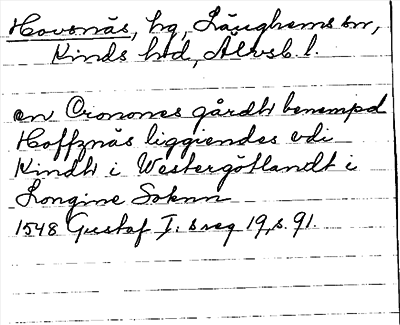 Hovsnäs, hg, Länghems sn,
Kinds hd, Älvsb. l.
en Cronones gårdh benempd
Hoffznäs liggiendes vdi
Kindh i Westergötlandt i
Longine Soknn
1548 Gustaf I:s reg 19, s. 91.